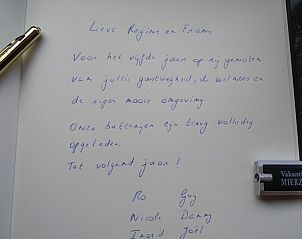 Lieve Regine en Frans
Voor het vijfde jaar op rij genoten
van jullie gastvrijheid, de welness en
de super mooie omgeving
Onze batterijen zijn terug volledig
opgeladen.
Tot volgend jaar!
Ro Guy
Nicole Danny
Ingrid Joël
Vakanti
MIERZ